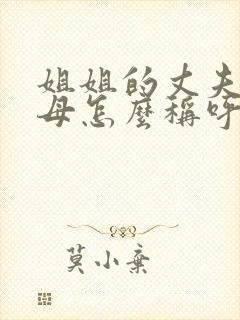 姐姐的丈夫
母怎麼稱呼
莫小棄